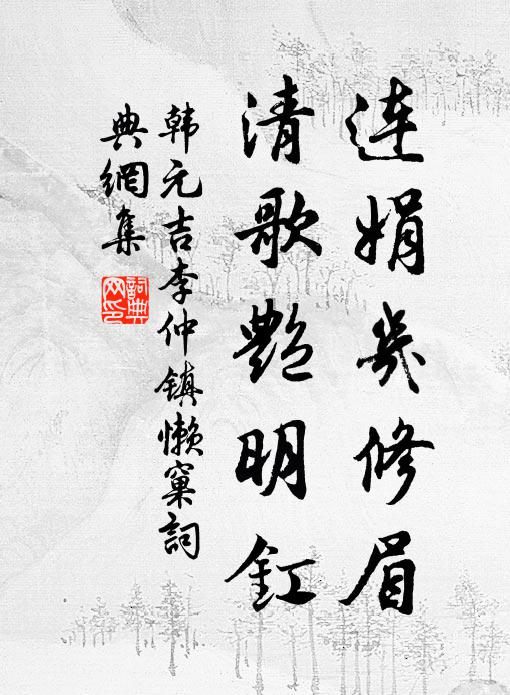 连娟几修眉
清歌艳明釭
韩元吉李仲镇懒窠詞
典網集
詞典网印